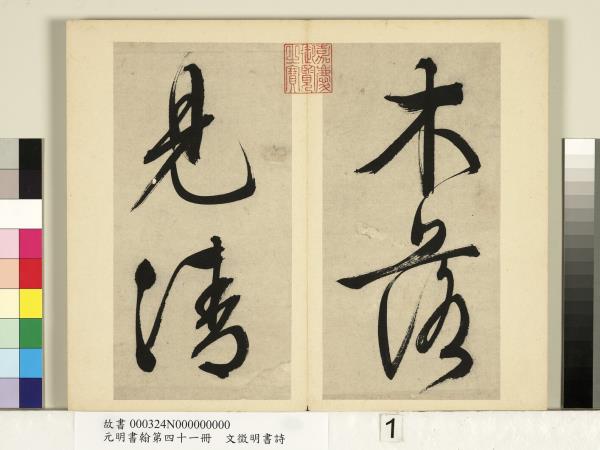 木落
見清
嘉慶
御覽
之寶
故書 000324N000000000
元明書翰第四十一冊 文徵明書詩
1